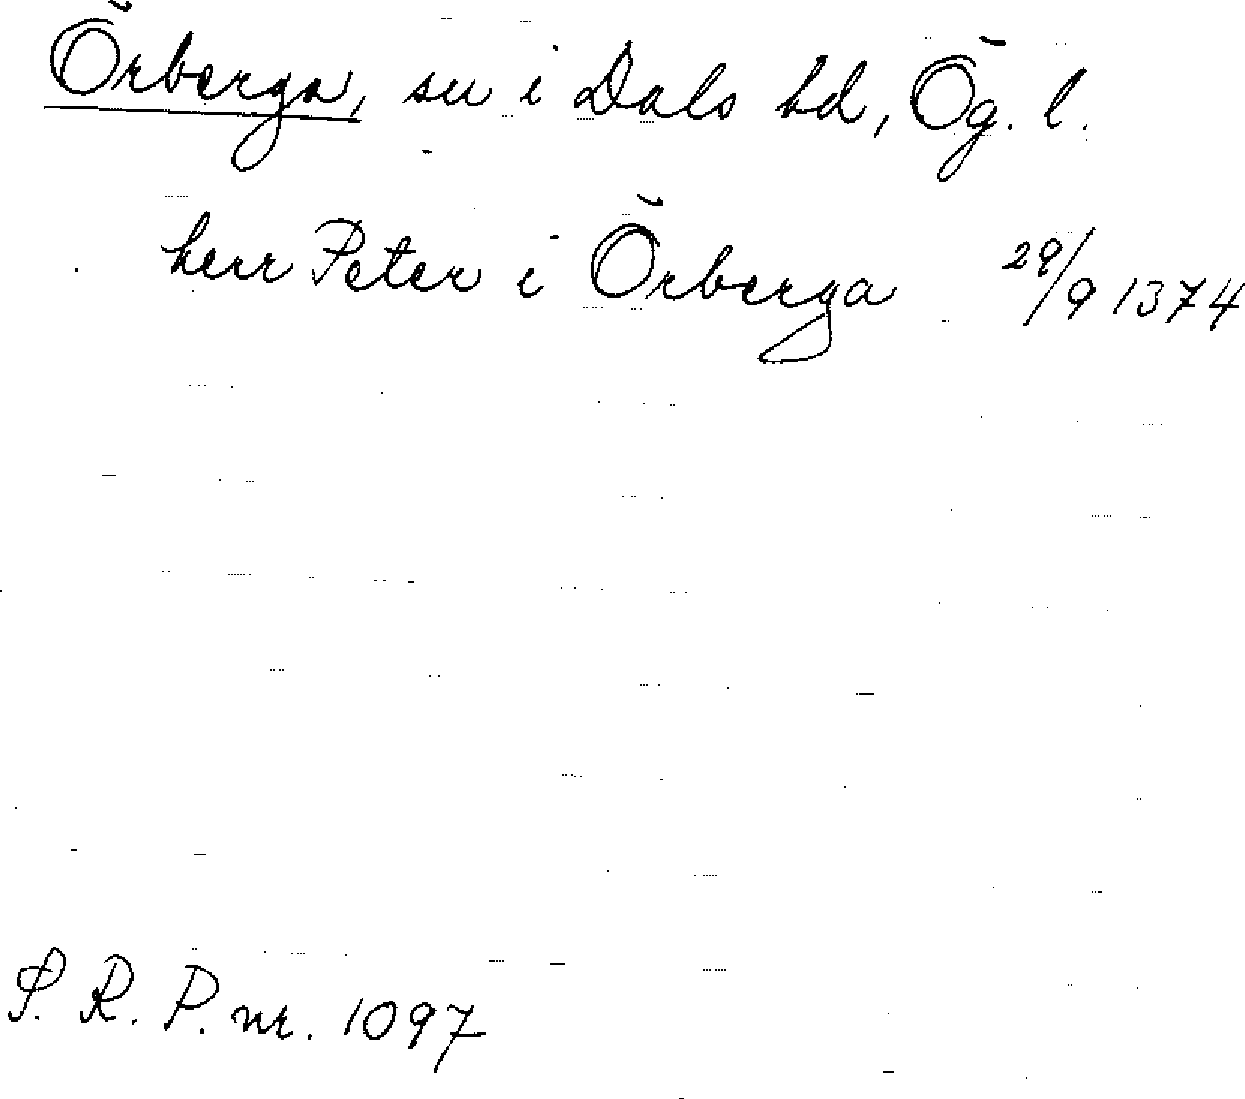 Örberga, sn i Dals hd, Ög. l.
herr Peter i Örberga 29/9 1374
S. R. P. nr. 1097